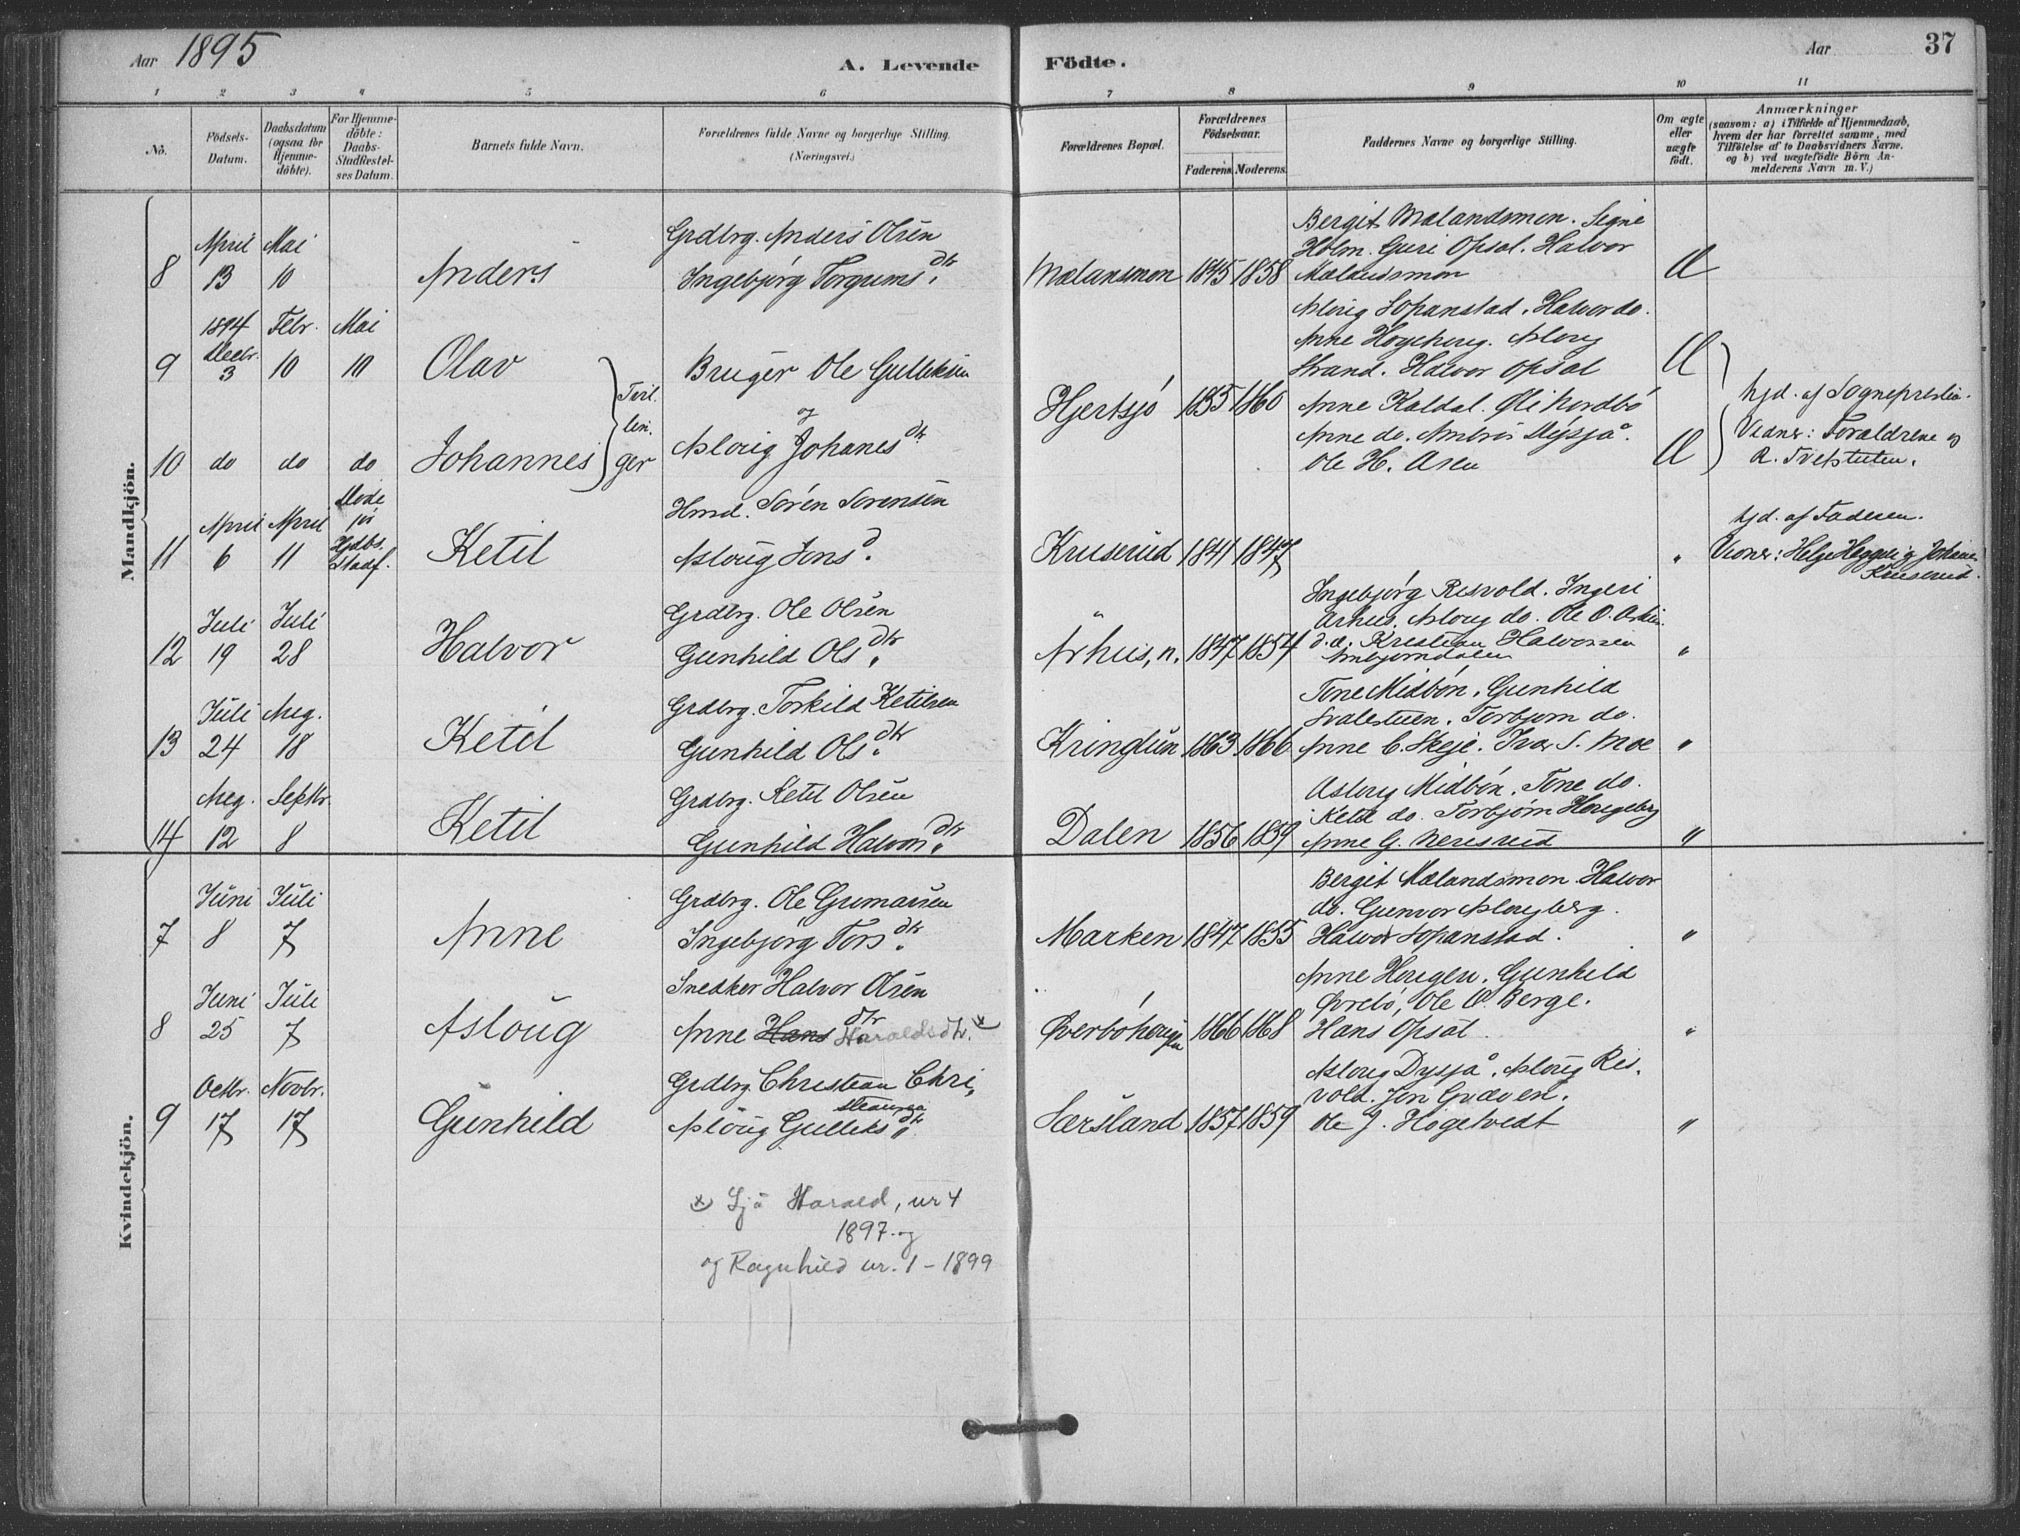 Aar 1895
A. Levende Födte.
Aar 37
1 2 3 4 5 6 7 8 9 10 11
No.
Födsels-Datum.
Daabsdatum (ogsaa for Hjemme-döbte).
For Hjemme-döbte: Daabs-Stadfæstel-ses Datum.
Barnets fulde Navn.
Forældrenes fulde Navne og borgerlige Stilling.
(Næringsvei.)
Forældrenes Bopæl.
Forældrenes Födselsaar.
Faderens. Moderens.
Faddernes Navne og borgerlige Stilling.
Om ægte eller uægte födt.
Anmærkninger
(saasom: a) i Tilfælde af Hjemmedaab,
hvem der har forrettet samme, med
Tilföielse af to Daabsvidners Navne.
og b) ved uægtefödte Börn An-
melderens Navn m. V.)
Mandkjön.
8 April 13 Mai 10 Anders
Grdbrg. Anders Olsen
Ingebjörg Torgrims dtr.
Mælandsmoen 1845 1858
Bergit Mælandsmoen. Signe
Holm. Guri Opsal. Halvor
Mælandsmoen
9 1894 Decbr. 3 Febr. 10 Mai 10 Olav
Bruger Ole Gulleksen
og
Asloug Johanes dtr
Tvil.
lin.
ger
Hjertsjö 1855 1860
Asloug Sopanstad. Halvor do.
Anne Högeberg. Asloug
Strand. Halvor Opsal
10 do do do Johannes
Anne Kaldal. Ole Nordbö
Anne do.
Ole H. Asen
hjd. af Sognepresten.
Vidner: Forældrene og
R. Tvetstuten.
11 April 6 April 11 Döde för Hjdbs. Stadf. Ketil
Hmd. Sören Sörensen
Asloug Jons d.
Kruserud 1841 1847 "
hjd. af Faderen.
Vidner: Helge Heggeli og Johanes
Kruserud.
12 Juli 19 Juli 28 Halvor
Grdbrg. Ole Olsen
Gunhild Ols dtr.
Århus, n. 1847 1854
Ingebjörg Risvold. Ingeri
Århus. Asloug do. Ole O.
d.æ. Kristian Halvorsen
"
13 Juli 24 Aug. 18 Ketil
Grdbrg. Torkild Ketilsen
Gunhild Ols dtr.
Kringlun 1863 1866
Tone Midbön. Gunhild
Svalestuen. Torbjörn do.
Anne C. Skeje. Ivar S. Moe "
14 Aug. 12 Septbr. 8 Ketil
Grdbrg. Ketil Olsen
Gunhild Halvors dtr.
Dalen 1856 1859
Asloug Midbön. Tone do.
Ketil do. Torbjörn Haugeberg
Anne G. Neresrud "
Kvindekjön.
7 Juni 8 Juli 7 Anne
Grdbrg. Ole Gumansen
Ingebjörg Tors dtr.
Marken 1847 1855
Bergit Mælandsmoen Halvor
do. Gunvor Aslougberg.
Halvor Sopanstad. "
8 Juni 25 Juli 7 Asloug
Snedker Halvor Olsen
Anne Hans dtr Haraldsdtr. x
Överböhaugen 1866 1868
Anne Haugen. Gunhild
Övrebö, Ole O. Berge.
Hans Opsal. "
9 Octbr. 17 Novbr. 17 Gunhild
Grdbrg. Christian Chri-
stiansen
Asloug Gulleks dtr.
Særsland 1857 1859
Asloug Dysjå. Asloug Ris-
vold. Jon Gudven.
Ole J. Högetvedt "
x Sjå Harald, nr 4
1897. og
og Ragnhild nr. 1 - 1899